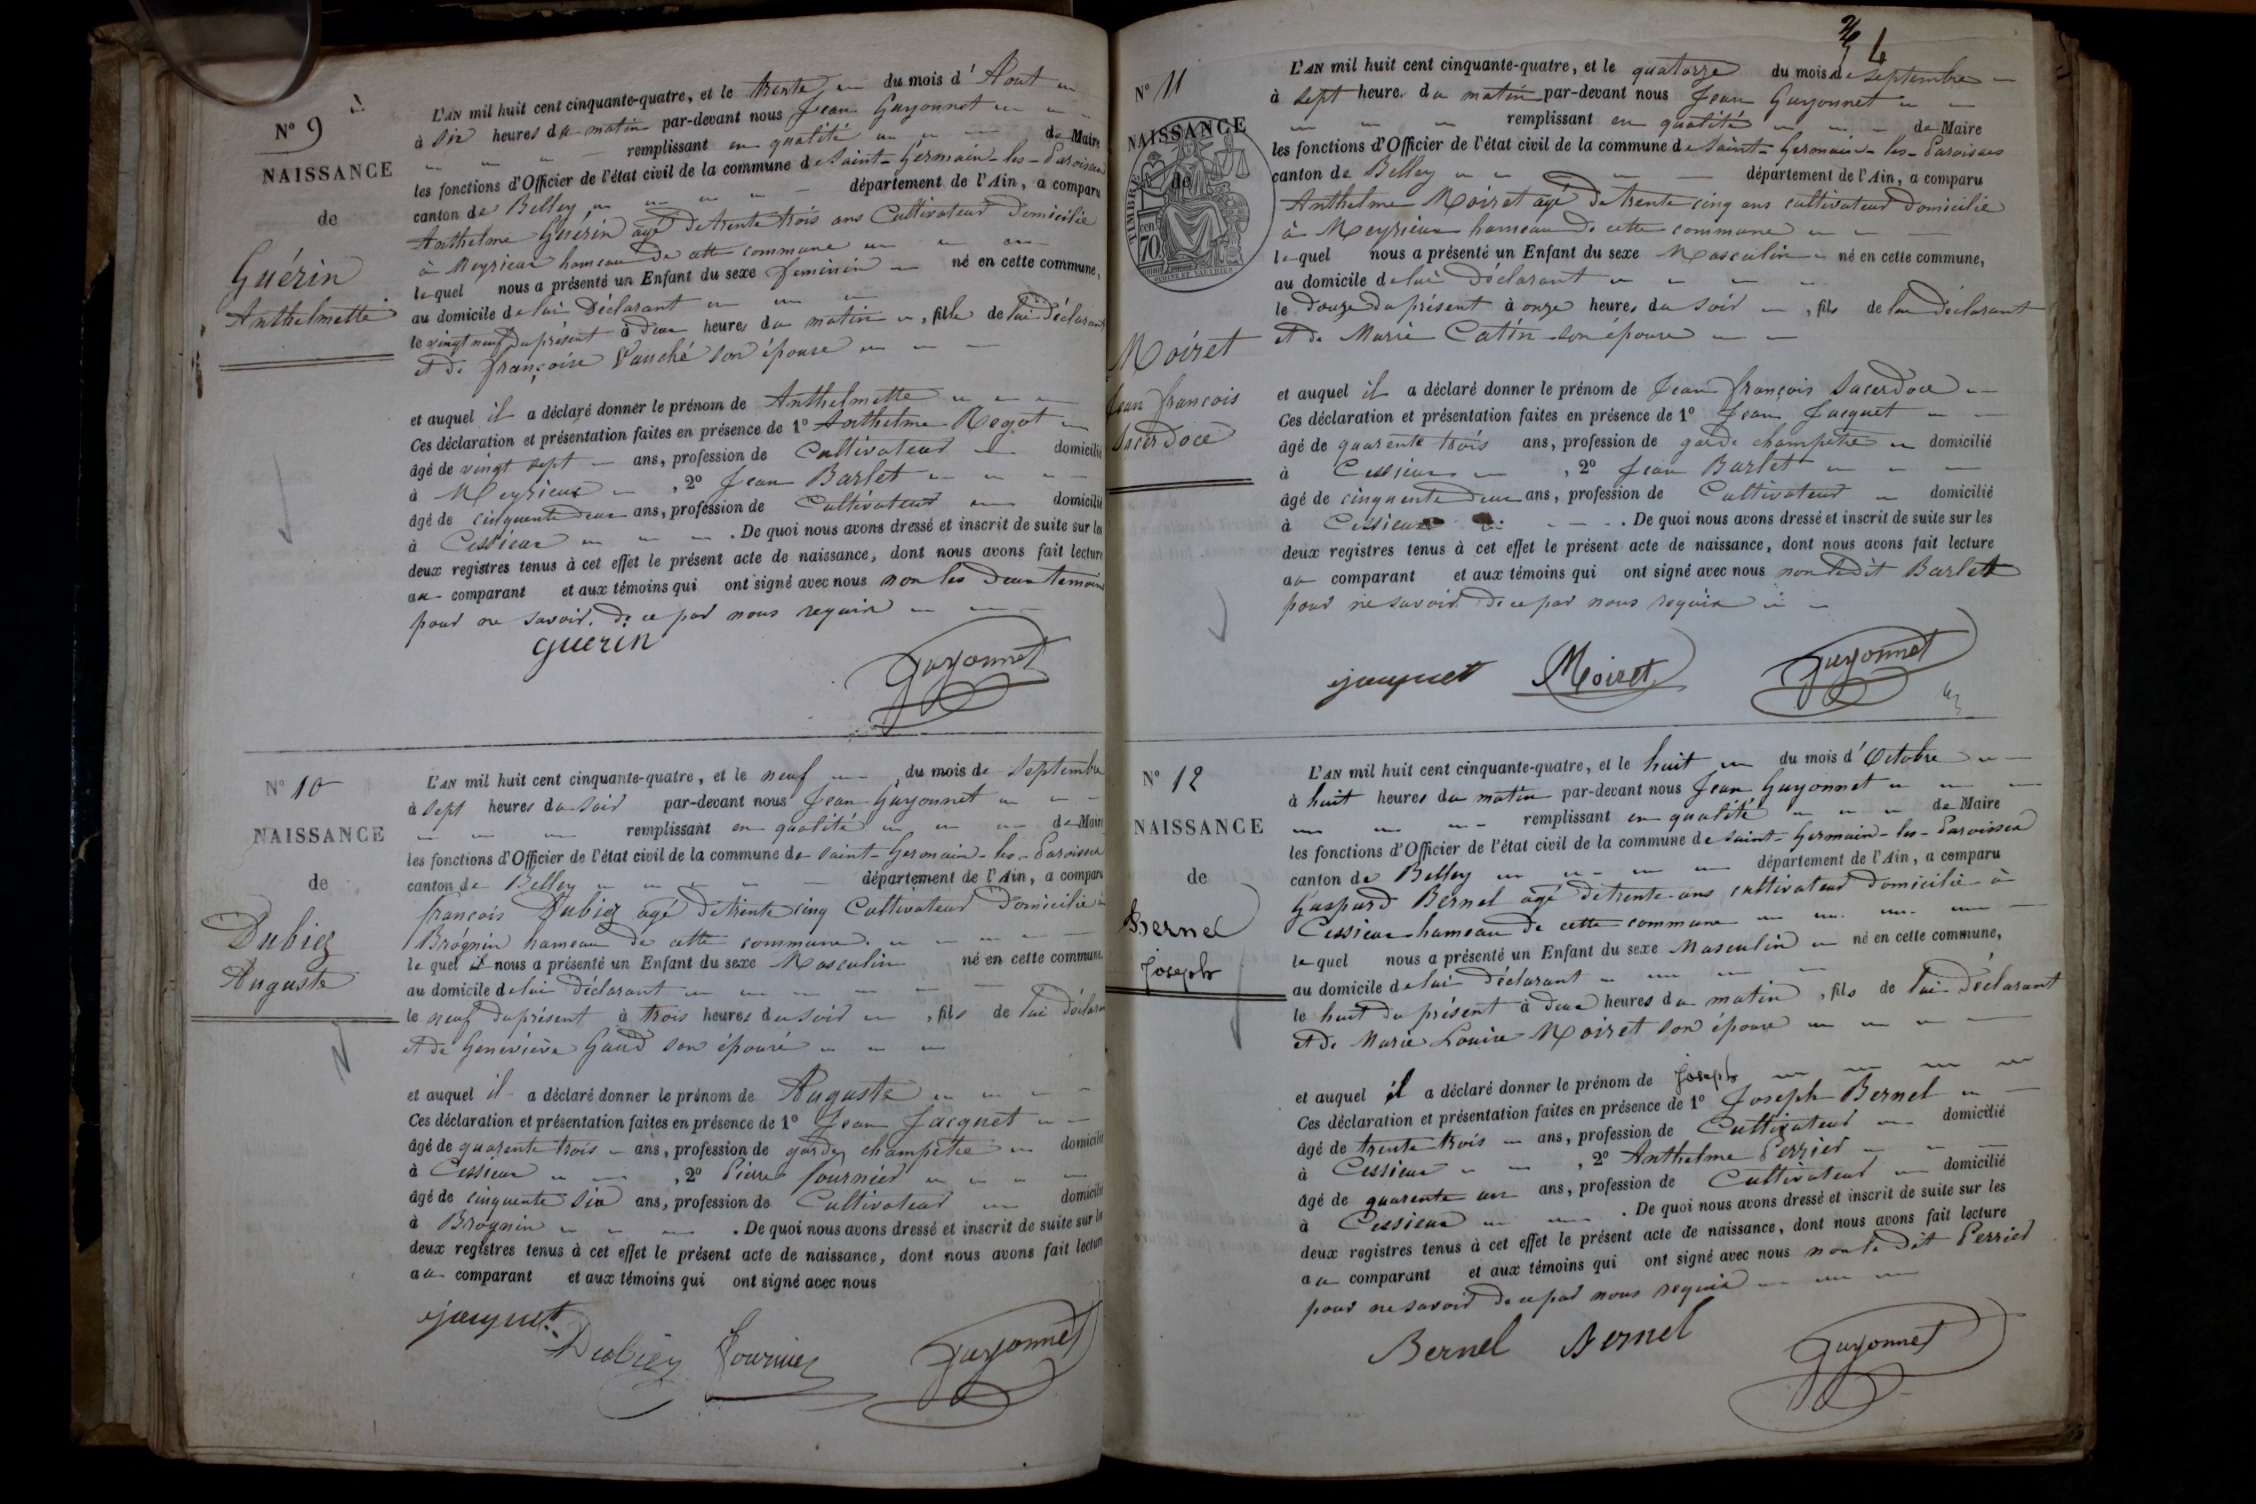 N° 9
NAISSANCE
de
Guérin
Anthelmette
L'AN mil huit cent cinquante-quatre, et le trente du mois d'Aout
à six heures du matin par-devant nous Jean Guyonnet
remplissant en qualité de Maire
les fonctions d'Officier de l'état civil de la commune de Saint-Germain-les-Paroisses
canton de Belley département de l'Ain, a comparu
Anthelme Guérin agé de trente trois ans Cultivateur Domicilié
à Meyrieux hameau de cette commune
lequel nous a présenté un Enfant du sexe feminin né en cette commune,
au domicile de lui Déclarant
le vingt neuf du présent à deux heures du matin, fille de lui Déclarant
et de françoise Vauché son épouse
et auquel il a déclaré donner le prénom de Anthelmette
Ces déclaration et présentation faites en présence de 1° Anthelme
âgé de vingt sept ans, profession de Cultivateur domicilié
à Meyrieux, 2° Jean Barlet
âgé de cinquante deux ans, profession de Cultivateur domicilié
à Cessieux. De quoi nous avons dressé et inscrit de suite sur les
deux registres tenus à cet effet le présent acte de naissance, dont nous avons fait lecture
au comparant et aux témoins qui ont signé avec nous non les deux temoins
pour ne savoir, de ce par nous requis
guerin
Guyonnet
N° 10
NAISSANCE
de
Dubiez
Auguste
L'AN mil huit cent cinquante-quatre, et le neuf du mois de Septembre
à sept heures du soir par-devant nous Jean Guyonnet
remplissant en qualité de Maire
les fonctions d'Officier de l'état civil de la commune de Saint-Germain-les-Paroisses
canton de Belley département de l'Ain, a comparu
françois Dubiez agé de trente cinq Cultivateur Domicilié à
Brognin hameau de cette commune
lequel il nous a présenté un Enfant du sexe Masculin né en cette commune
au domicile de lui Déclarant
le neuf du présent à trois heures du soir, fils de lui déclarant
et de Geneviève Gaud son épouse
et auquel il a déclaré donner le prénom de Auguste
Ces déclaration et présentation faites en présence de 1° Jean Jacquet
âgé de quarente trois ans, profession de garde champetre domicilié
à Cessieux, 2° Pierre fournier
âgé de cinquante six ans, profession de Cultivateur domicilié
à Brognin. De quoi nous avons dressé et inscrit de suite sur les
deux registres tenus à cet effet le présent acte de naissance, dont nous avons fait lecture
au comparant et aux témoins qui ont signé avec nous
jacquet
Dubiez fournier Guyonnet
4
N° 11
NAISSANCE
de
TIMBRE
70
Moiret
Jean françois
Sacerdoce
L'AN mil huit cent cinquante-quatre, et le quatorze du mois de septembre
à sept heure du matin par-devant nous Jean Guyonnet
remplissant en qualité de Maire
les fonctions d'Officier de l'état civil de la commune de Saint-Germain-les-Paroisses
canton de Belley département de l'Ain, a comparu
Anthelme Moiret agé de trente cinq ans cultivateur Domicilié
à Meyrieux hameau de cette commune
lequel nous a présenté un Enfant du sexe Masculin né en cette commune,
au domicile de lui Déclarant
le Douze du présent à onze heures du soir, fils de lui Déclarant
et de Marie Catin son épouse
et auquel il a déclaré donner le prénom de Jean françois Sacerdoce
Ces déclaration et présentation faites en présence de 1° Jean Jacquet
âgé de quarente trois ans, profession de garde champetre domicilié
à Cessieux, 2° Jean Barlet
âgé de cinquente deux ans, profession de Cultivateur domicilié
à Cessieux. De quoi nous avons dressé et inscrit de suite sur les
deux registres tenus à cet effet le présent acte de naissance, dont nous avons fait lecture
au comparant et aux témoins qui ont signé avec nous non le dit Barlet
pour ne savoir de ce par nous requis
jacquet Moiret Guyonnet
N° 12
NAISSANCE
de
Bernel
joseph
L'AN mil huit cent cinquante-quatre, et le huit du mois d'Octobre
à huit heures du matin par-devant nous Jean Guyonnet
remplissant en qualité de Maire
les fonctions d'Officier de l'état civil de la commune de Saint-Germain-les-Paroisses
canton de Belley département de l'Ain, a comparu
Gaspard Bernel agé de trente ans cultivateur Domicilié à
Cessieux hameau de cette commune
lequel nous a présenté un Enfant du sexe Masculin né en cette commune,
au domicile de lui déclarant
le huit du présent à deux heures du matin, fils de lui déclarant
et de Marie Louise Moiret son épouse
et auquel il a déclaré donner le prénom de joseph
Ces déclaration et présentation faites en présence de 1° Joseph Bernel
âgé de trente trois ans, profession de Cultivateur domicilié
à Cessieux, 2° Anthelme Perrier
âgé de quarente un ans, profession de Cultivateur domicilié
à Cessieux. De quoi nous avons dressé et inscrit de suite sur les
deux registres tenus à cet effet le présent acte de naissance, dont nous avons fait lecture
au comparant et aux témoins qui ont signé avec nous non le dit Perrier
pour ne savoir de ce par nous requis
Bernel Bernel Guyonnet